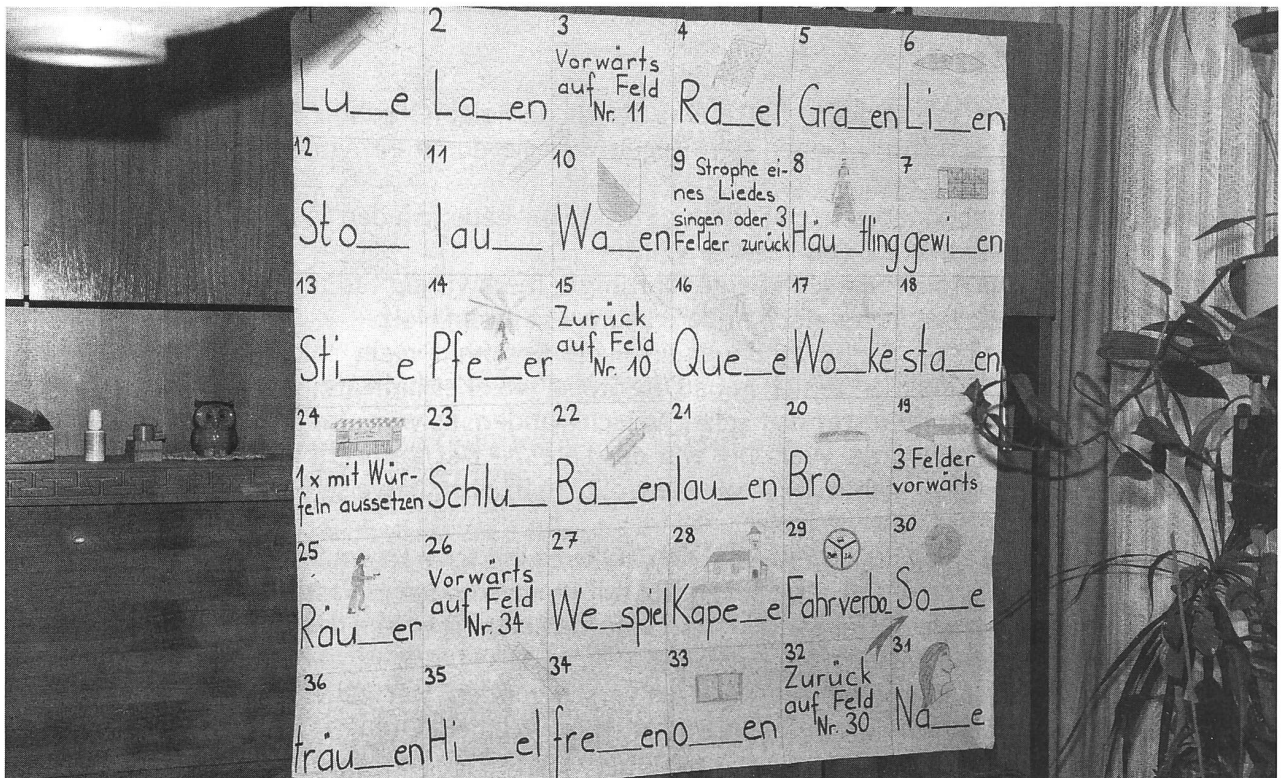 1
Lu__e
2
La__en
3
Vorwärts
auf Feld
Nr. 11
4
Ra__el
5
Gra__en
6
Li__en
12
Sto__
11
lau__
10
Wa__en
9 Strophe ei-
nes Liedes
singen oder 3
Felder zurück
8
Häu__tling
7
gewi__en
13
Sti__e
14
Pfe__er
15
Zurück
auf Feld
Nr. 10
16
Que__e
17
Wo__ke
18
sta__en
24
1x mit Wür-
feln aussetzen
23
Schlu__
22
Ba__en
21
lau__en
20
Bro__
19
3 Felder
vorwärts
25
Räu__er
26
Vorwärts
auf Feld
Nr. 34
27
We__spiel
28
Kape__e
29
Fahrverbo__
30
So__e
36
träu__en
35
Hi__el
34
fre__en
33
o__en
32
Zurück
auf Feld
Nr. 30
31
Na__e